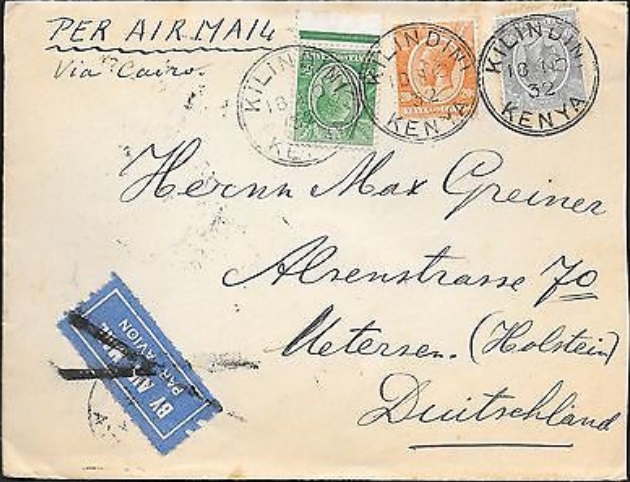 PER AIR MAIL
Via Cairo.
KILINDINI
18
KENYA
KILINDINI
18
32
KENYA
KILINDINI
18 AU
32
KENYA
Herrn Max Greiner
Alsenstrasse 70
Uetersen. (Holstein)
Duitschland
BY AIR MAIL
PAR AVION